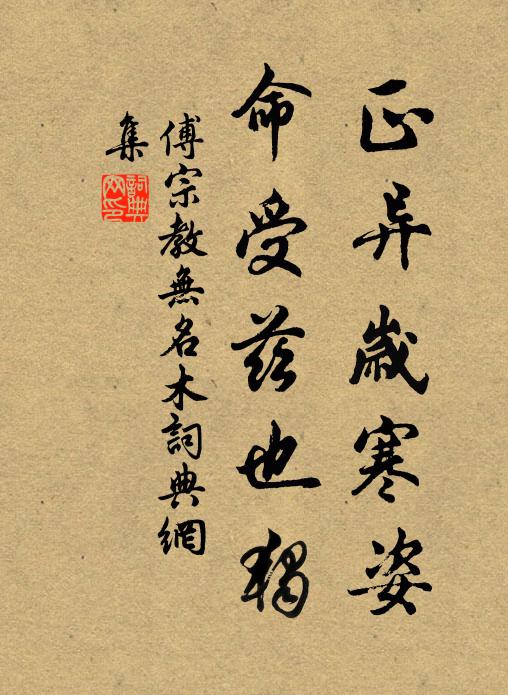 正异歲寒姿
命受兹也獨
傅宗教無名木詞典網
集
詞典网印